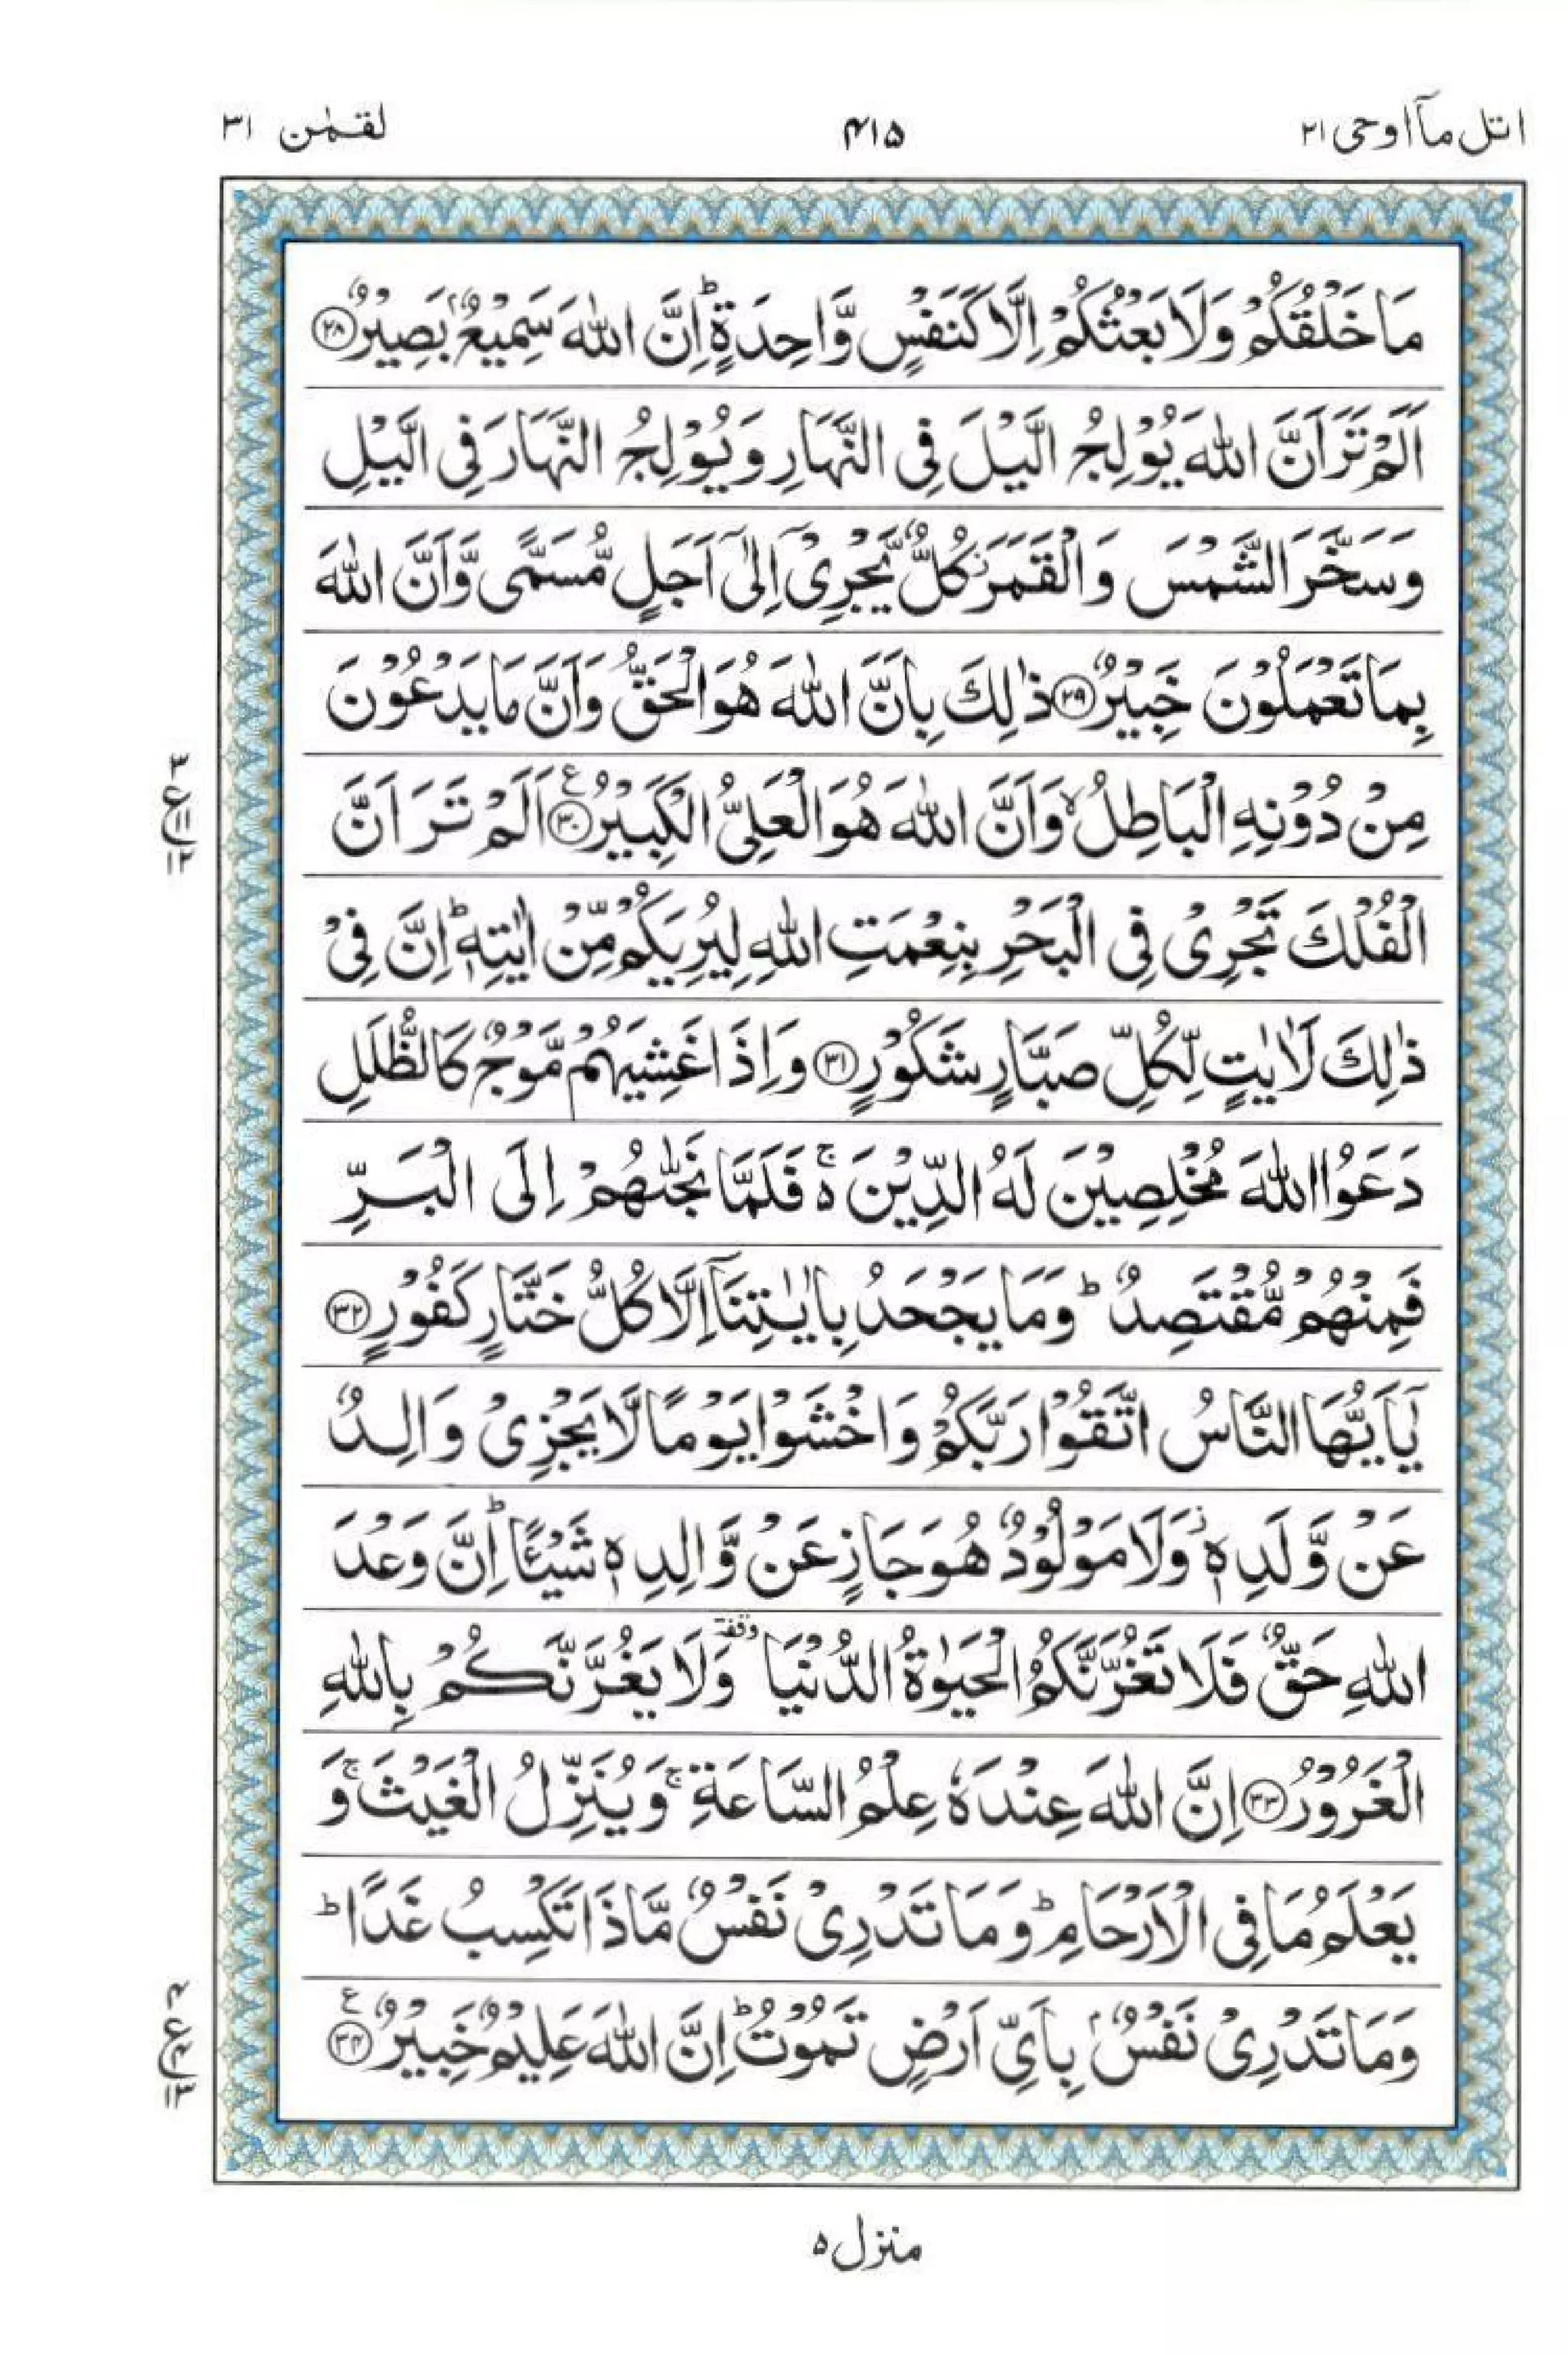 اتل مآ اوحی ۲۱
۴۱۵
لقمٰن ۳۱
مَا خَلْقُكُمْ وَلَا بَعْثُكُمْ اِلَّا كَنَفْسٍ وَّاحِدَةٍ ؕ اِنَّ اللّٰهَ سَمِيْعٌۢ بَصِيْرٌ ﴿۲۸﴾
اَلَمْ تَرَ اَنَّ اللّٰهَ يُوْلِجُ الَّيْلَ فِى النَّهَارِ وَيُوْلِجُ النَّهَارَ فِى الَّيْلِ
وَسَخَّرَ الشَّمْسَ وَالْقَمَرَ ز كُلٌّ يَّجْرِىْۤ اِلٰٓى اَجَلٍ مُّسَمًّى وَّاَنَّ اللّٰهَ
بِمَا تَعْمَلُوْنَ خَبِيْرٌ ﴿۲۹﴾ ذٰلِكَ بِاَنَّ اللّٰهَ هُوَ الْحَقُّ وَاَنَّ مَا يَدْعُوْنَ
مِنْ دُوْنِهِ الْبَاطِلُ ۙ وَاَنَّ اللّٰهَ هُوَ الْعَلِىُّ الْكَبِيْرُ ﴿۳۰﴾ ع اَلَمْ تَرَ اَنَّ
الْفُلْكَ تَجْرِىْ فِى الْبَحْرِ بِنِعْمَتِ اللّٰهِ لِيُرِيَكُمْ مِّنْ اٰيٰتِهٖ ؕ اِنَّ فِىْ
ذٰلِكَ لَاٰيٰتٍ لِّكُلِّ صَبَّارٍ شَكُوْرٍ ﴿۳۱﴾ وَاِذَا غَشِيَهُمْ مَّوْجٌ كَالظُّلَلِ
دَعَوُا اللّٰهَ مُخْلِصِيْنَ لَهُ الدِّيْنَ ۚ۬ فَلَمَّا نَجّٰىهُمْ اِلَى الْبَرِّ
فَمِنْهُمْ مُّقْتَصِدٌ ؕ وَمَا يَجْحَدُ بِاٰيٰتِنَاۤ اِلَّا كُلُّ خَتَّارٍ كَفُوْرٍ ﴿۳۲﴾
يٰۤاَيُّهَا النَّاسُ اتَّقُوْا رَبَّكُمْ وَاخْشَوْا يَوْمًا لَّا يَجْزِىْ وَالِدٌ
عَنْ وَّلَدِهٖ ز وَلَا مَوْلُوْدٌ هُوَ جَازٍ عَنْ وَّالِدِهٖ شَيْـًٔا ؕ اِنَّ وَعْدَ
اللّٰهِ حَقٌّ فَلَا تَغُرَّنَّكُمُ الْحَيٰوةُ الدُّنْيَا وقفة وَلَا يَغُرَّنَّكُمْ بِاللّٰهِ
الْغَرُوْرُ ﴿۳۳﴾ اِنَّ اللّٰهَ عِنْدَهٗ عِلْمُ السَّاعَةِ ۚ وَيُنَزِّلُ الْغَيْثَ ۚ وَ
يَعْلَمُ مَا فِى الْاَرْحَامِ ؕ وَمَا تَدْرِىْ نَفْسٌ مَّاذَا تَكْسِبُ غَدًا ؕ
وَمَا تَدْرِىْ نَفْسٌۢ بِاَىِّ اَرْضٍ تَمُوْتُ ؕ اِنَّ اللّٰهَ عَلِيْمٌ خَبِيْرٌ ﴿۳۴﴾ ع
۳
ع ۱۱
۱۲
۴
ع ۴
۱۳
منزل ۵